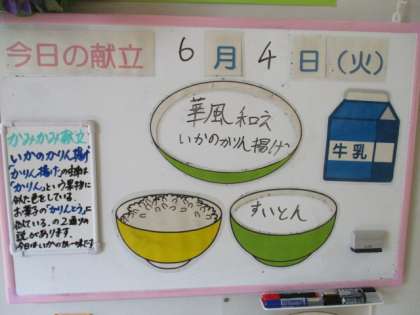 今日の献立 6月4日(火)
華風和え
いかのかりん揚げ
牛乳
すいとん
かみかみ献立
いかのかりん揚げ
「かりん揚げ」の由来は
「かりん」という果物に
似た色をしている、
お菓子の「かりんとう」に
似ている、の2通りの
説があります。